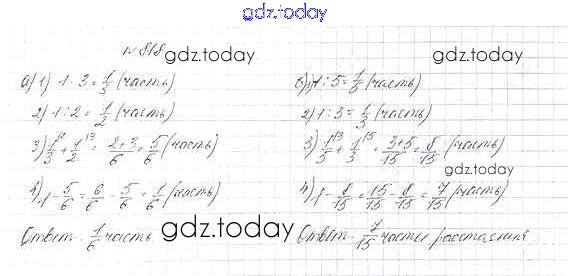 gdz.today
№ 818
gdz.today
gdz.today
а) 1) 1 : 3 = 1/3 (часть)
2) 1 : 2 = 1/2 (часть)
3) 1/3 + 1/2 = (2+3)/6 = 5/6 (часть)
4) 1 - 5/6 = 6/6 - 5/6 = 1/6 (часть)
Ответ: 1/6 часть
б) 1) 1 : 5 = 1/5 (часть)
2) 1 : 3 = 1/3 (часть)
3) 1/5 + 1/3 = (3+5)/15 = 8/15 (часть)
gdz.today
4) 1 - 8/15 = 15/15 - 8/15 = 7/15 (часть)
gdz.today
Ответ: 7/15 расстояния